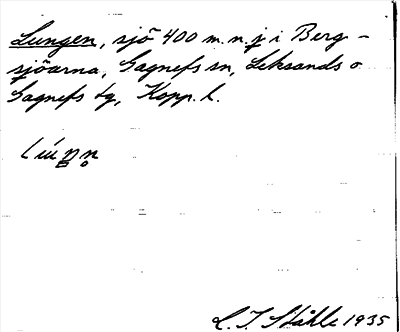 Lungen, sjö 400 m. n. j i Berg-
sjöarna, Gagnefs sn, Leksands o
Gagnefs tg, Kopp. l.
L. I. Ståhle 1935